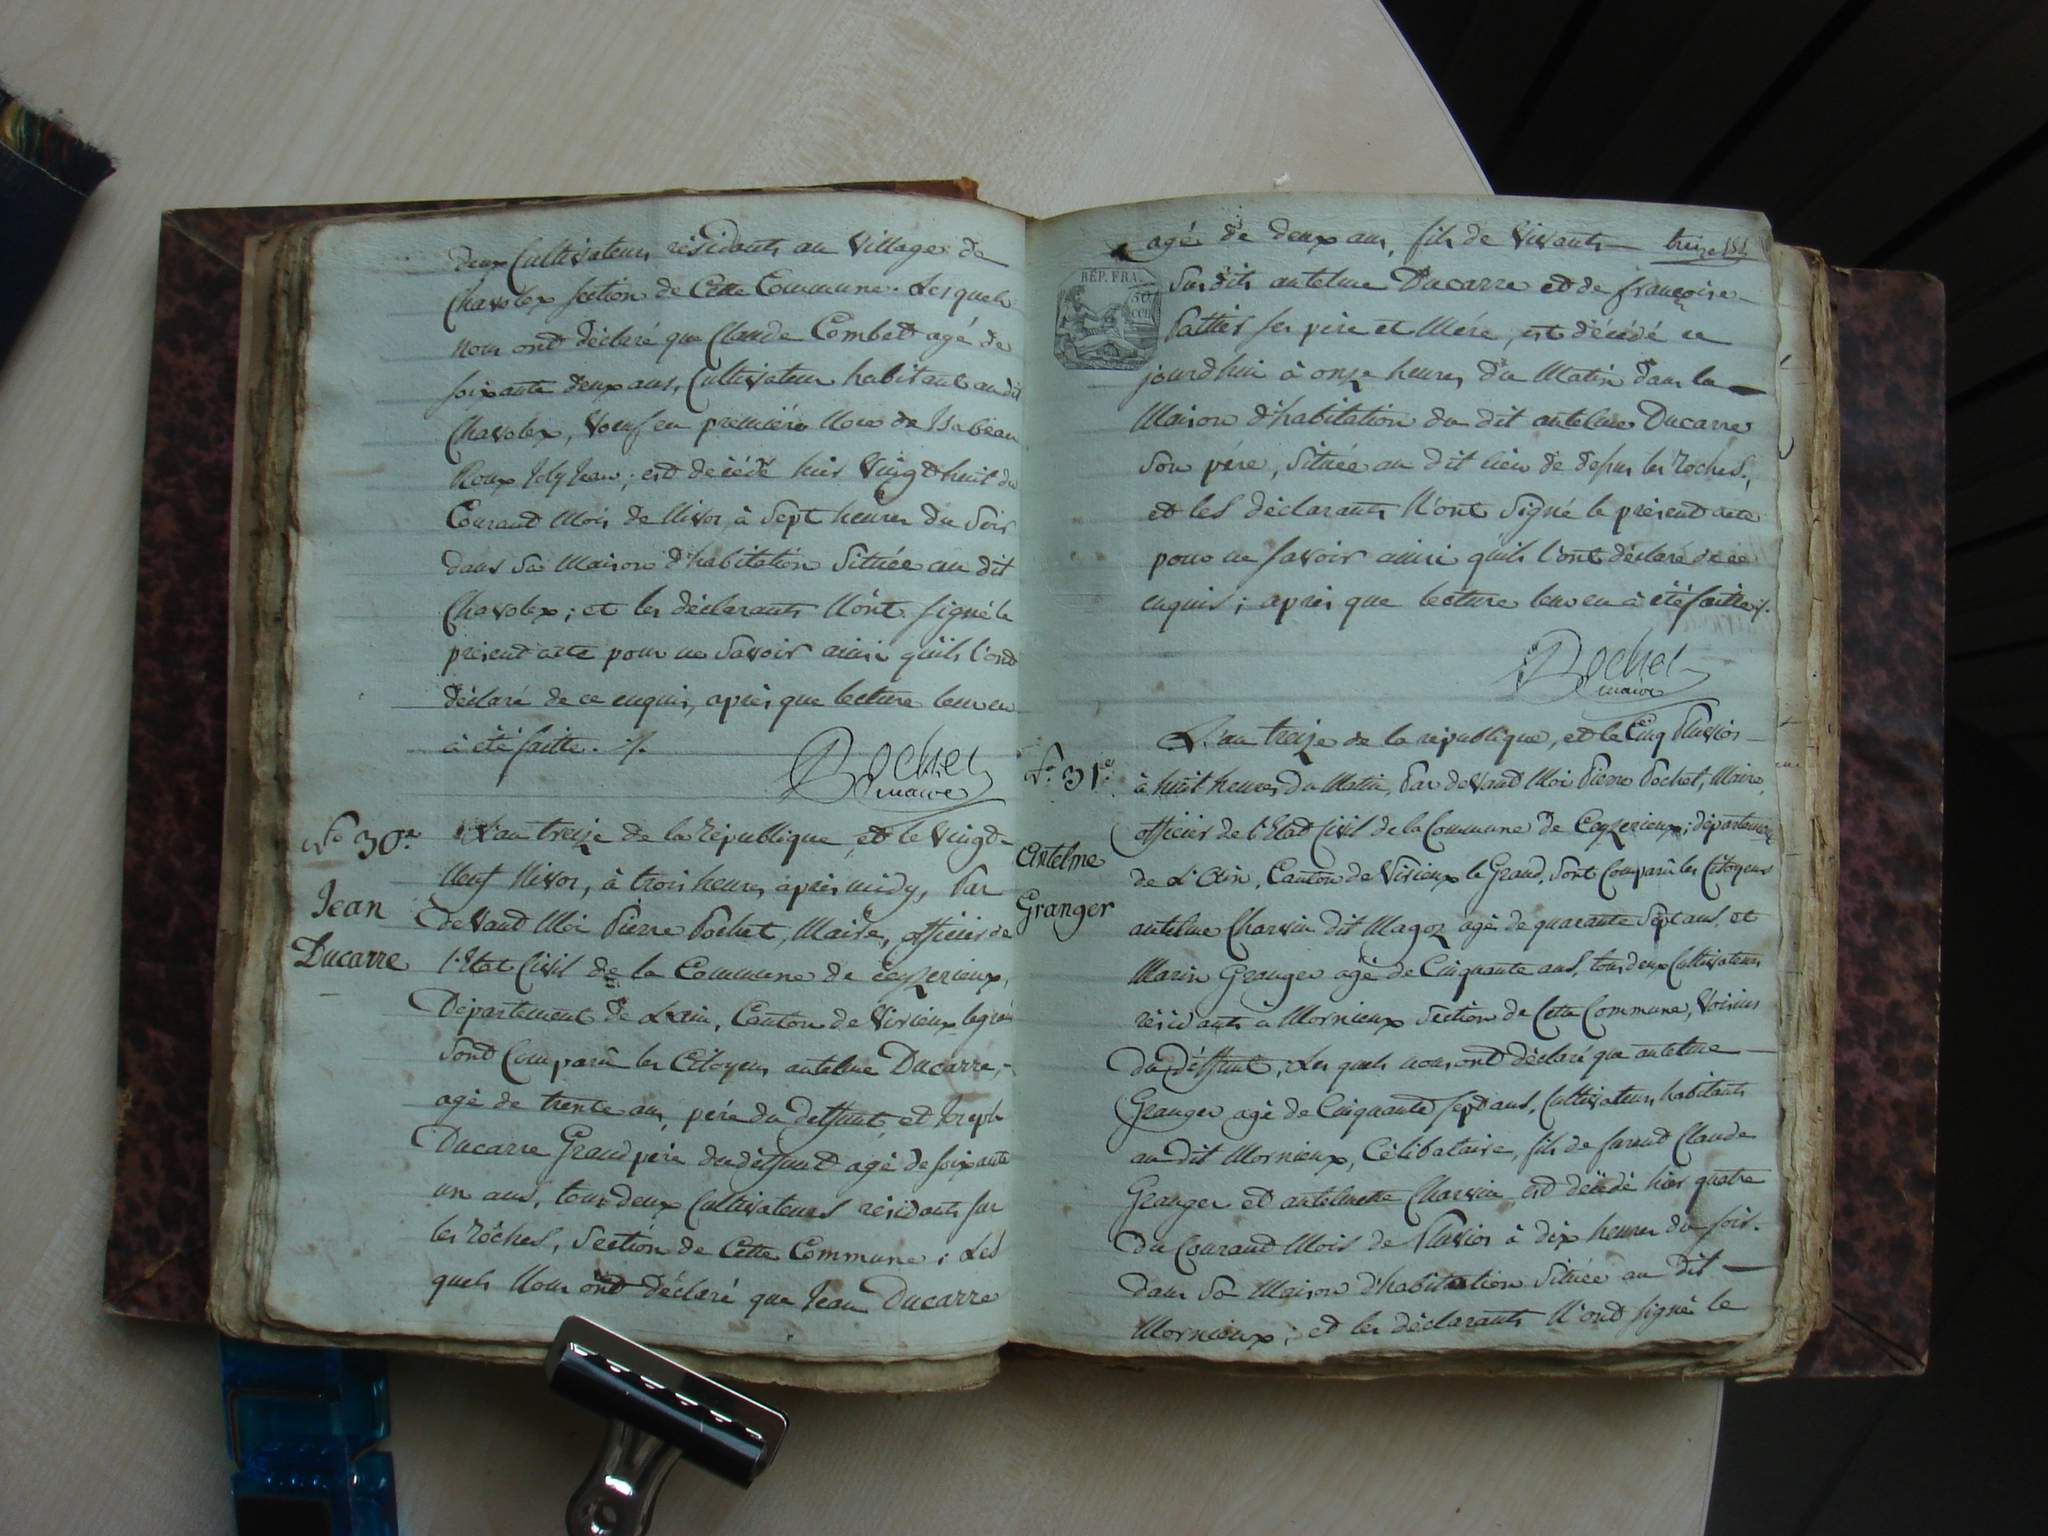 deux Cultivateurs résidants au Village de
Chavolex section de Cette Commune. Lesquels
nous ont déclaré que Claude Combet agé de
soixante deux ans, Cultivateur habitant au dit
Chavolex, Voeuf en première Noce de Isabeau
Roux ; est décédé hier Vingt huit du
Courand Mois de Nivos, à Sept heures du Soir
dans Sa Maison d'habitation Située au dit
Chavolex ; et les déclarants N'ont signé le
présend acte pour ne Savoir ainsi qu'ils l'ond
déclaré de ce enquis, après que lecture leur en
à été faitte. ./.
Pochet
maire
N.º 30.e
Jean
Ducarre
L'an treize de la République, et le Vingd-
Neuf Nivos, à trois heures après midy, Par
deVand Moi Pierre Pochet, Maire, officier de
l'Etat Civil de la Commune de ceyzerieux,
Département de L'ain, Canton de Virieux le grand
Sond Comparû les Citoyens antelme Ducarre,-
agé de trente ans, père du deffunt, et Joseph
Ducarre Grand père du deffunt agé de soixante
un ans, tous deux Cultivateurs résidants sur
les rôches, Section de Cette Commune ; Les
quels Nous ond déclaré que Jean Ducarre
agé de deux ans, fils de Vivants — treize
RÉP. FRA.
50
CEN
Susdits antelme Ducarre et de françoise
Pattier ses père et Mère, est décédé ce
jourdhui à onze heures du Matin dans la
Maison d'habitation du dit antelme Ducarre
Son père, Située au dit lieu de dessus les roches,
et les déclarants N'ont Signé le présend acte
pour ne savoir ainsi qu'ils l'ont déclaré de ce
enquis ; après que lecture leur en à été faitte ./.
Pochet
maire
N.º 31.e
Antelme
Granger
L'an treize de la république, et le Cinq Pluvios
à huit heures du Matin, Par deVand Moi Pierre Pochet, Maire,
officier de l'Etat Civil de la Commune de Ceyzerieux ; département
de L'Ain, Canton de Virieux le Grand, Sont Comparû les Citoyens
antelme Charvin dit Magoz agé de quarante Sept ans, et
Marin Granger agé de Cinquante ans, tous deux Cultivateurs
résidants à Mornieux Section de Cette Commune, Voisins
du déffunt, Les quels nous ond déclaré que antelme
Granger agé de Cinquante sept ans, Cultivateur, habitants
au dit Mornieux, Célibataire, fils de furent Claude
Granger et antelmette Charvin est décédé hier quatre
du Courand Mois de Pluvios à dix heures du soir.
dans Sa Maison d'habitation Située au dit
Mornieux ; et les déclarants N'ond signé le